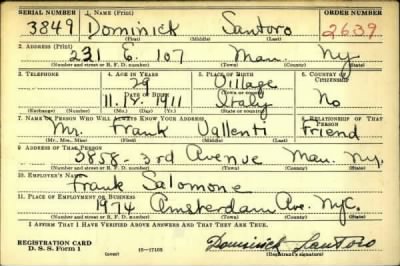 SERIAL NUMBER 1. NAME (Print) ORDER NUMBER
3849 Dominick Santoro 2639
(First) (Middle) (Last)
2. ADDRESS (Print)
231 E. 107 Man. Ny.
(Number and street or R. F. D. number) (Town) (County) (State)
3. TELEPHONE 4. AGE IN YEARS 5. PLACE OF BIRTH 6. COUNTRY OF CITIZENSHIP
29 Village
DATE OF BIRTH (Town or county)
11. 18. 1911 Italy No
(Exchange) (Number) (Mo.) (Day) (Yr.) (State or country)
7. NAME OF PERSON WHO WILL ALWAYS KNOW YOUR ADDRESS 8. RELATIONSHIP OF THAT PERSON
Mr. Frank Vallenti Friend
(Mr., Mrs., Miss) (First) (Middle) (Last)
9. ADDRESS OF THAT PERSON
3858 - 3rd Avenue Man. Ny.
(Number and street or R. F. D. number) (Town) (County) (State)
10. EMPLOYER'S NAME
Frank Salomone
11. PLACE OF EMPLOYMENT OR BUSINESS
1974 Amsterdam Ave. NYC.
(Number and street or R. F. D. number) (Town) (County) (State)
I AFFIRM THAT I HAVE VERIFIED ABOVE ANSWERS AND THAT THEY ARE TRUE.
REGISTRATION CARD
D. S. S. Form 1 (over) 16—17105 Dominick Santoro
(Registrant's signature)